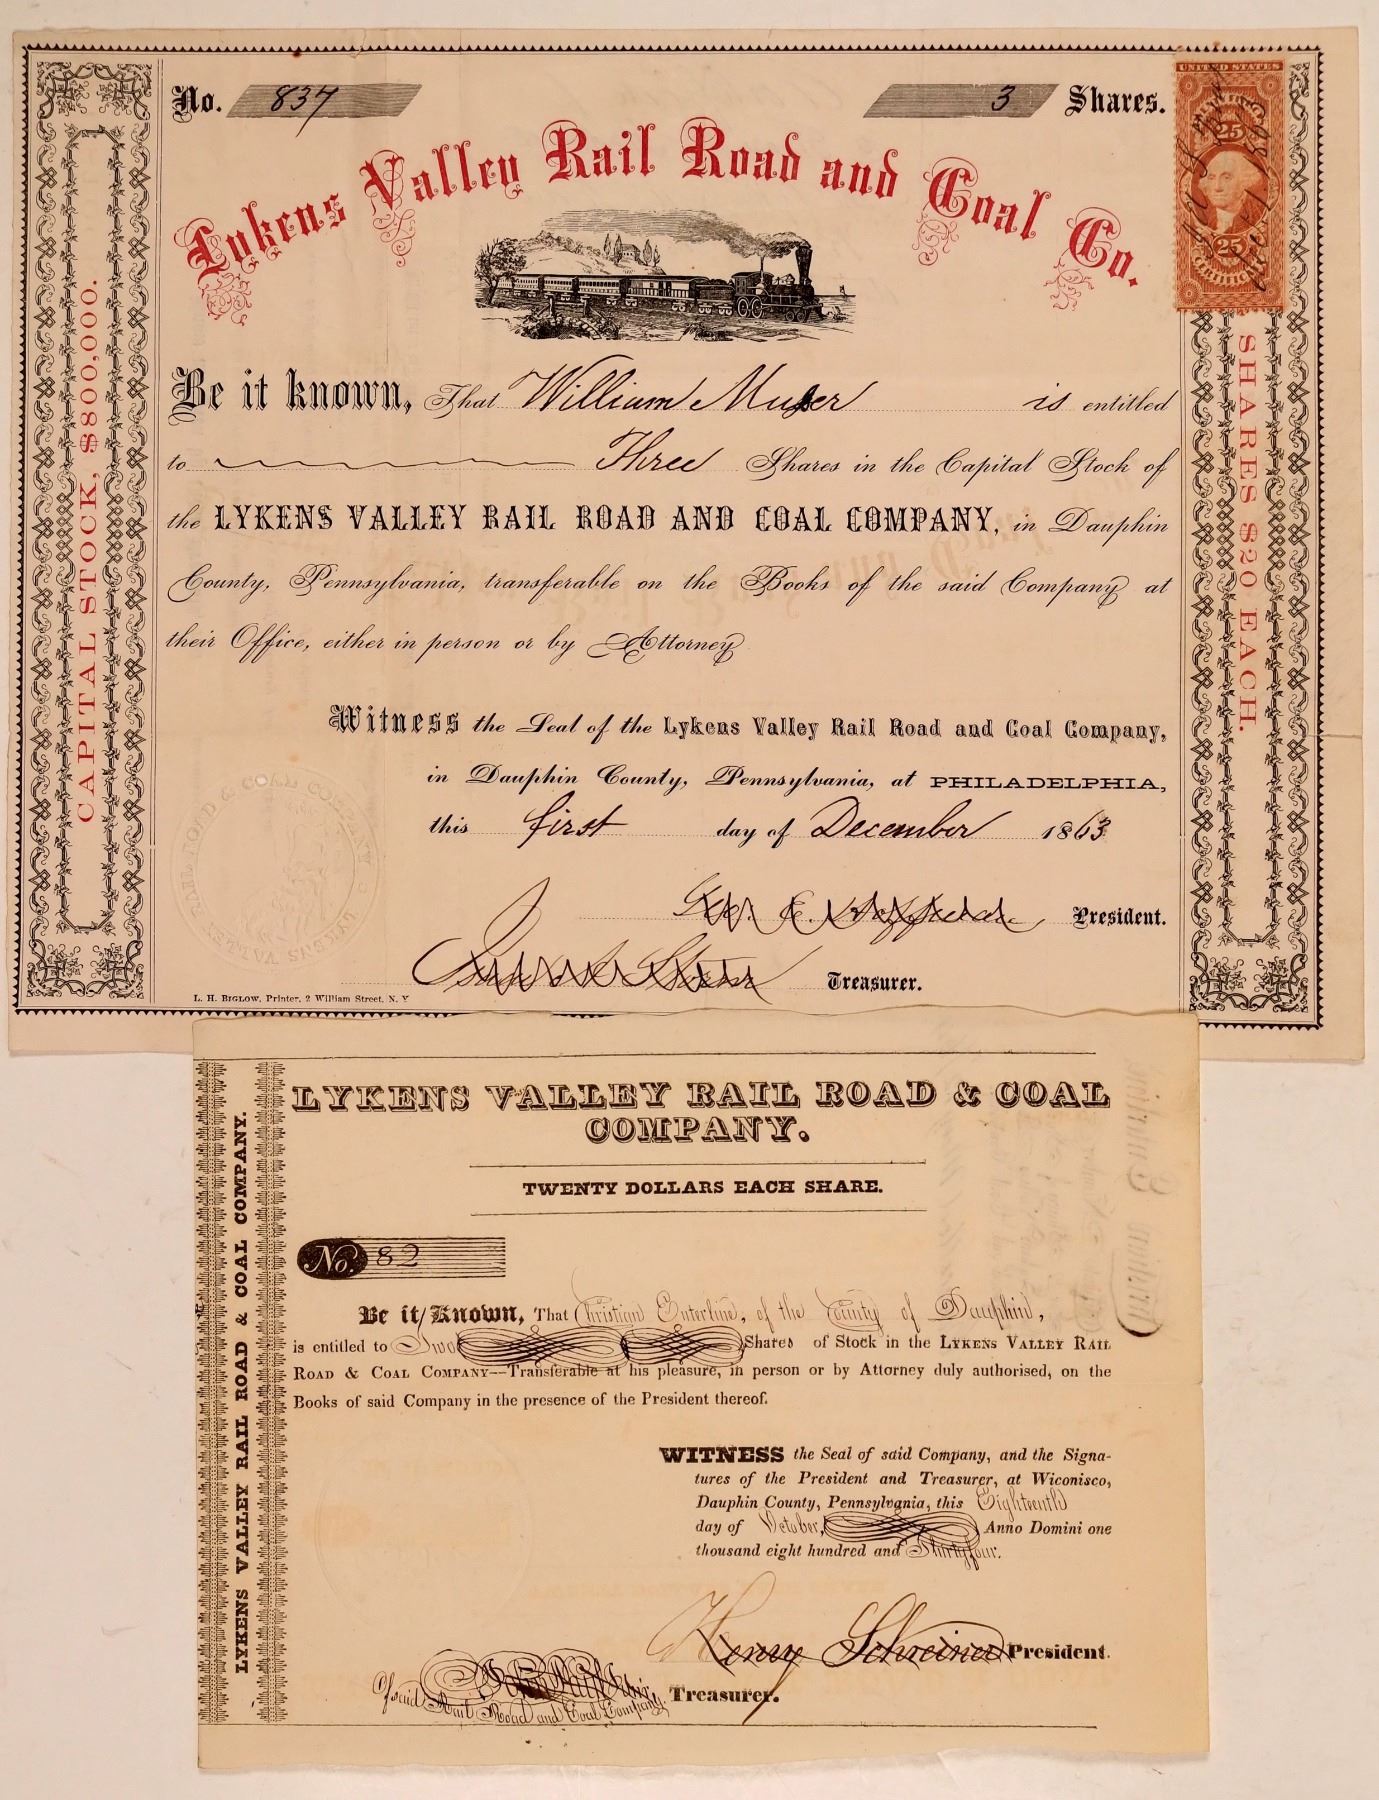 No. 837 3 Shares.
UNITED STATES
25
25
CERTIFICATE
Lykens Valley Rail Road and Coal Co.
CAPITAL STOCK, $800,000.
SHARES $20 EACH.
Be it known, That William Musser is entitled
to Three Shares in the Capital Stock of
the LYKENS VALLEY RAIL ROAD AND COAL COMPANY, in Dauphin
County, Pennsylvania, transferable on the Books of the said Company at
their Office, either in person or by Attorney
Witness the Seal of the Lykens Valley Rail Road and Coal Company,
in Dauphin County, Pennsylvania, at PHILADELPHIA,
this first day of December 1863
President.
Treasurer.
L. H. BIGLOW, Printer, 2 William Street, N. Y
LYKENS VALLEY RAIL ROAD & COAL COMPANY.
LYKENS VALLEY RAIL ROAD & COAL COMPANY.
LYKENS VALLEY RAIL ROAD & COAL
COMPANY.
TWENTY DOLLARS EACH SHARE.
No. 82
Be it Known, That Christian Enterline, of the County of Dauphin,
is entitled to Two Shares of Stock in the LYKENS VALLEY RAIL
ROAD & COAL COMPANY—Transferable at his pleasure, in person or by Attorney duly authorised, on the
Books of said Company in the presence of the President thereof.
WITNESS the Seal of said Company, and the Signa-
tures of the President and Treasurer, at Wiconisco,
Dauphin County, Pennsylvania, this Eighteenth
day of October, Anno Domini one
thousand eight hundred and Thirtyfour.
Henry Schreiner President.
Treasurer.
Of said Rail Road and Coal Company.